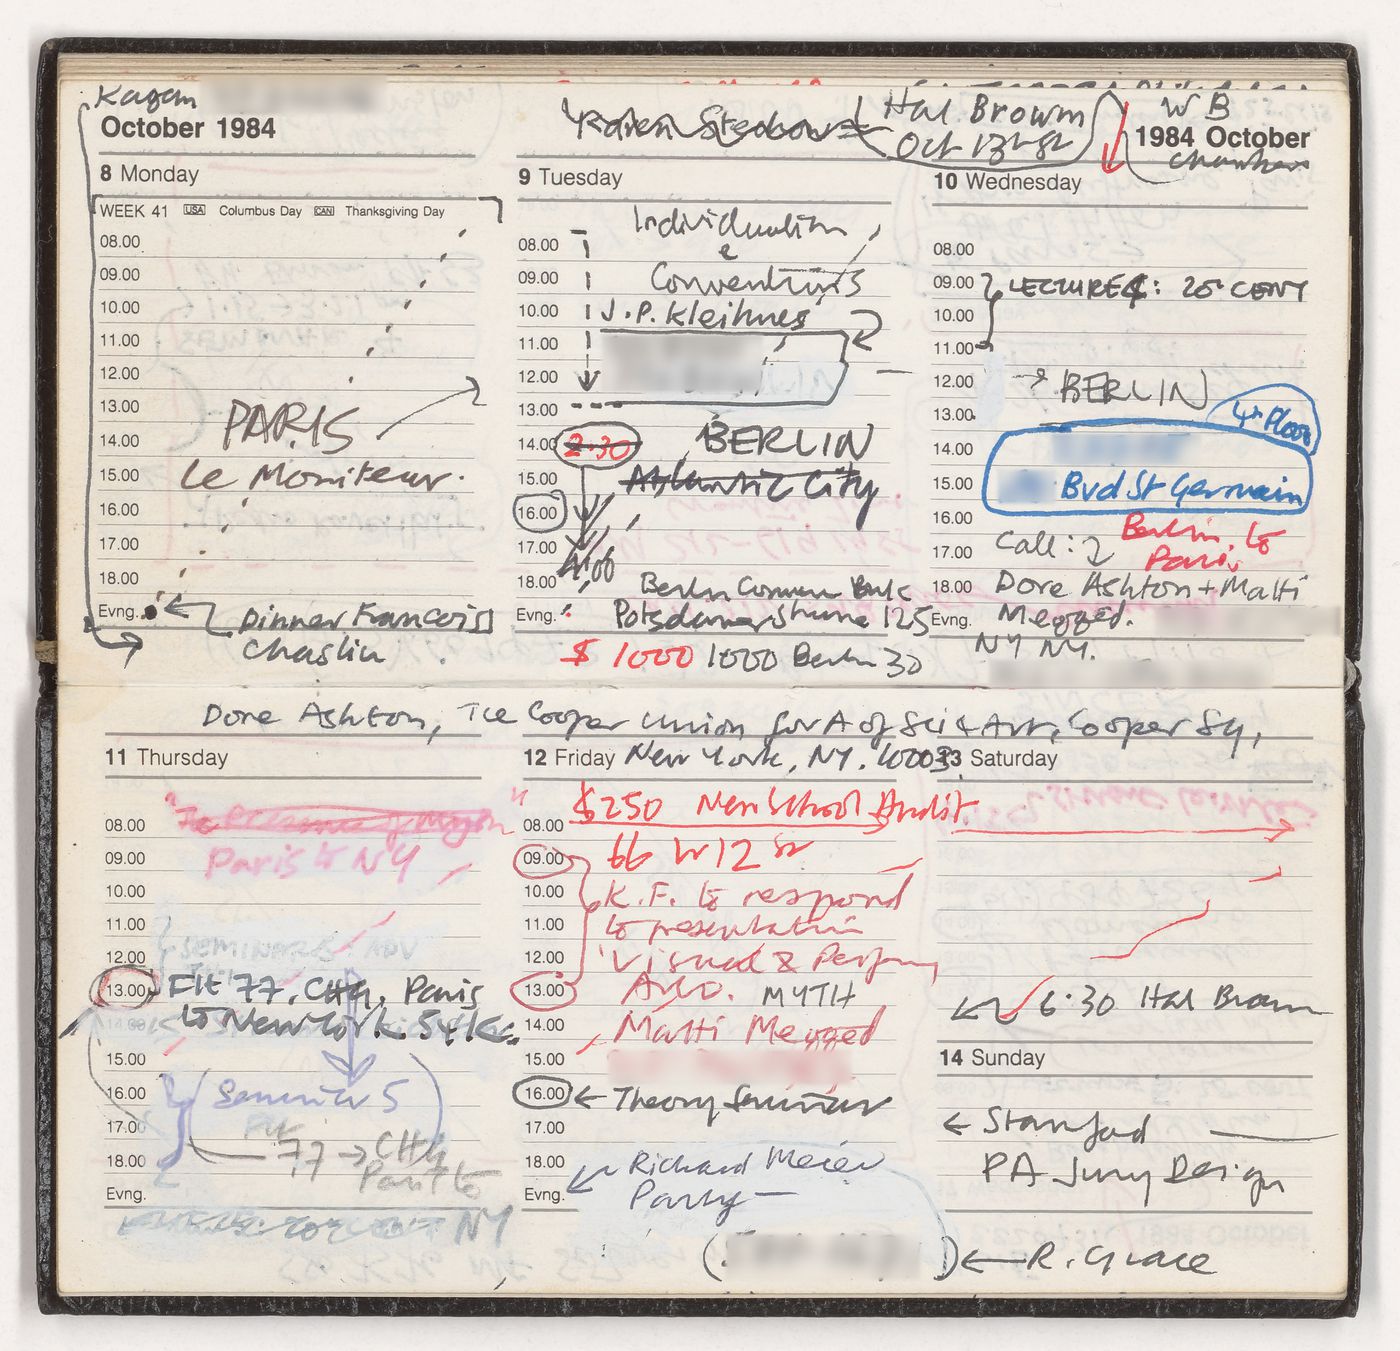 Kagan
October 1984
8 Monday
WEEK 41 USA Columbus Day CAN Thanksgiving Day
08.00
09.00
10.00
11.00
12.00
13.00 PARIS
14.00
15.00 Le Moniteur.
16.00
17.00
18.00
Evng. Dinner Francois
Chaslin
Hal Browm
Oct 13
9 Tuesday
Individualism
08.00
&
09.00 Conventions
10.00 J.P. Kleihues
11.00
12.00
13.00
14.00 2.30 BERLIN
15.00 Atlantic City
16.00
17.00 4.00
18.00 Berlin
Evng. Potsdamer Strasse 125
$ 1000 1000 Berlin 30
WB
1984 October
Chambers
10 Wednesday
08.00
09.00 LECTURE 4: 20th CENT
10.00
11.00
12.00 BERLIN
13.00 4th Floor
14.00
15.00 Bvd St Germain
16.00 Berlin to
17.00 Call: Paris
18.00 Dore Ashton + Matti
Evng. Megged.
NY NY.
Dore Ashton, The Cooper Union for A of Sci & Art, Cooper Sq,
11 Thursday
08.00
09.00 Paris to NY
10.00
11.00 SEMINAR
12.00
13.00 Flt 77. Paris
14.00 to New York.
15.00
16.00 Seminar 5
17.00 Flt
18.00 77 Paris to
Evng.
NY
12 Friday New York, NY. 10003
$250 New School Audit
08.00
09.00 66 W 12 St
10.00 K.F. to respond
11.00 to presentation
12.00 Visual & Perform
13.00 Arts. MYTH
14.00 Matti Megged
15.00
16.00 Theory Seminar
17.00
18.00 Richard Meier
Evng. Party
13 Saturday
6.30 Hal Brown
14 Sunday
Stanford
PA Jury Design
R. Grace